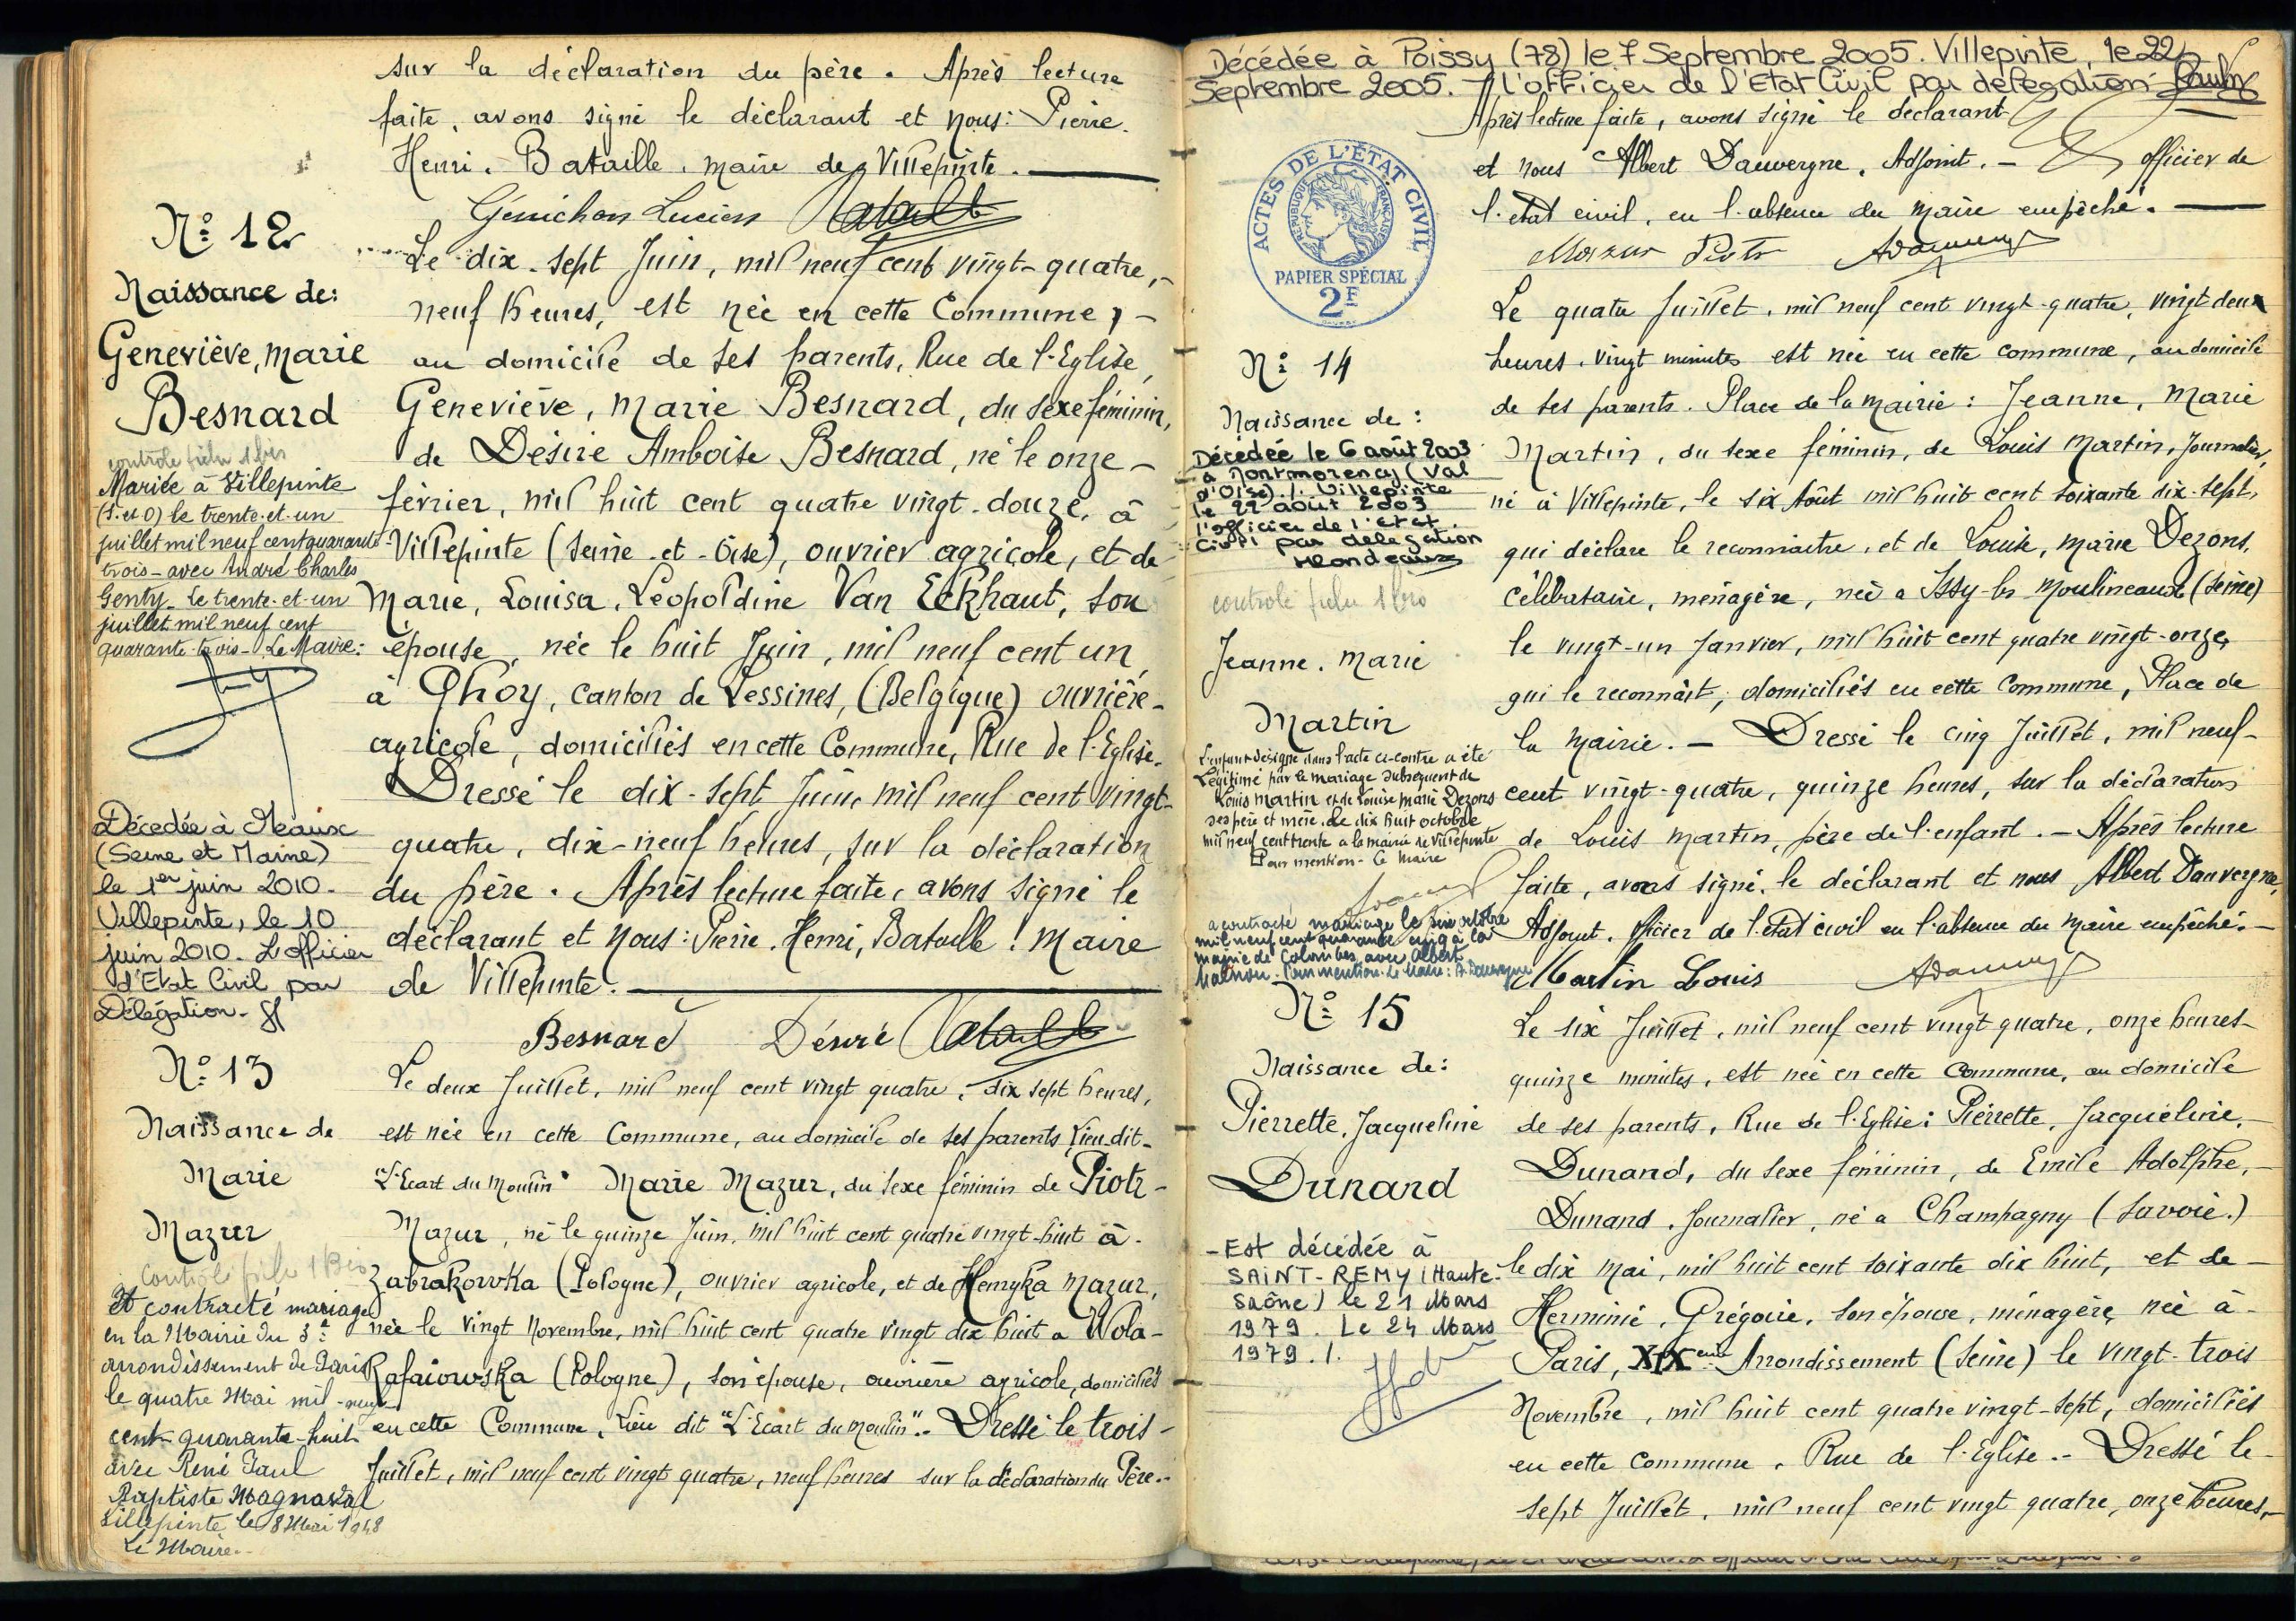 sur la déclaration du père. Après lecture
faite, avons signé le déclarant et nous: Pierre.
Henri. Bataille, maire de Villepinte.
Génichon Lucien
N° 12
Naissance de:
Geneviève, Marie
Besnard
controle fiche 1 bis
Mariée à Villepinte
(S. et O) le trente-et-un
juillet mil neuf cent quarante-
trois - avec André Charles
Genty - Le trente-et-un
juillet mil neuf cent
quarante-trois - Le Maire:
Décédée à Meaux
(Seine et Marne)
le 1er juin 2010.
Villepinte, le 10
juin 2010. L'officier
d'Etat Civil par
Délégation-
Le dix-sept Juin, mil neuf cent vingt-quatre,
neuf heures, est née en cette Commune,
au domicile de ses parents, Rue de l'Eglise,
Geneviève, Marie Besnard, du sexe féminin,
de Désiré Amboise Besnard, né le onze
février, mil huit cent quatre vingt-douze, à
Villepinte (Seine-et-Oise), ouvrier agricole, et de
Marie, Louisa, Léopoldine Van Eckhaut, son
épouse, née le huit Juin, mil neuf cent un,
à Ghoy, canton de Lessines, (Belgique) ouvrière-
agricole, domiciliés en cette Commune, Rue de l'Eglise.
Dressé le dix-sept Juin, mil neuf cent vingt-
quatre, dix-neuf heures, sur la déclaration
du père. Après lecture faite, avons signé le
déclarant et nous: Pierre. Henri, Bataille! Maire
de Villepinte.
Besnard Désiré
N° 13
Naissance de
Marie
Mazur
Controle fiche 1 Bis
et contracté mariage
en la Mairie du 3e
arrondissement de Paris
le quatre Mai mil-neuf
cent-quarante-huit
avec René Paul
Baptiste Magnaval
Villepinte le 8 Mai 1948
Le Maire.
Le deux Juillet, mil neuf cent vingt quatre, dix sept heures,
est née en cette Commune, au domicile de ses parents Lieu dit-
"L'Ecart du Moulin" Marie Mazur, du sexe féminin de Piotr-
Mazur, né le quinze Juin, mil huit cent quatre vingt-huit à
Zabrakowka (Pologne), ouvrier agricole, et de Henryka Mazur,
née le vingt Novembre, mil huit cent quatre vingt dix huit a Wola-
Rafaiowska (Pologne), son épouse, ouvrière agricole, domiciliés
en cette Commune, Lieu dit "L'Ecart du Moulin".- Dressé le trois-
Juillet, mil neuf cent vingt quatre, neuf heures sur la déclaration du Père.-
Décédée à Poissy (78) le 7 Septembre 2005. Villepinte, le 22
Septembre 2005. l'officier de l'Etat Civil par délégation
Après lecture faite, avons signé le déclarant
et nous Albert Dauvergne, Adjoint, officier de
l'état civil, en l'absence du Maire empêché.
Mazur Piotr
ACTES DE L'ÉTAT CIVIL
RÉPUBLIQUE FRANÇAISE
PAPIER SPÉCIAL
2F
N° 14
Naissance de:
Décédée le 6 août 2003
à Montmorency (Val
d'Oise). /. Villepinte
le 22 août 2003
l'officier de l'Etat
Civil par délégation
controle fiche 1 bis
Jeanne. Marie
Martin
L'enfant désigné dans l'acte ci-contre a été
Légitimé par le mariage subséquent de
Louis Martin et de Louise Marie Dezons
ses père et mère. Le dix huit octobre
mil neuf cent trente à la mairie de Villepinte
Pour mention - Le Maire
a contracté mariage le six octobre
mil neuf cent quarante cinq à la
mairie de Colombes avec Albert
Pour mention. Le Maire: A. Dauvergne
Le quatre Juillet, mil neuf cent vingt-quatre, vingt deux
heures, vingt minutes est née en cette commune, au domicile
de ses parents. Place de la Mairie: Jeanne, Marie
Martin, du sexe féminin, de Louis Martin, Journalier,
né à Villepinte, le six Août mil huit cent soixante dix-sept,
qui déclare le reconnaître, et de Louise, Marie Dezons,
célibataire, ménagère, née à Issy-les Moulineaux (Seine)
le vingt-un Janvier, mil huit cent quatre vingt-onze,
qui le reconnaît, domiciliés en cette Commune, Place de
la Mairie. - Dressé le cinq Juillet, mil neuf-
cent vingt-quatre, quinze heures, sur la déclaration
de Louis Martin, père de l'enfant. - Après lecture
faite, avons signé, le déclarant et nous Albert Dauvergne,
Adjoint, officier de l'état civil en l'absence du Maire empêché.-
Martin Louis
N° 15
Naissance de:
Pierrette, Jacqueline
Dunand
- Est décédée à
SAINT-REMY (Haute-
Saône) le 21 Mars
1979. Le 24 Mars
1979./.
Le six Juillet, mil neuf cent vingt quatre, onze heures-
quinze minutes, est née en cette Commune, au domicile
de ses parents, Rue de l'Eglise: Pierrette, Jacqueline,-
Dunand, du sexe féminin, de Emile Adolphe,-
Dunand, Journalier, né a Champagny (Savoie.)
le dix Mai, mil huit cent soixante dix huit, et de-
Herminie, Grégoire, son épouse, ménagère, née à-
Paris, XIXeme Arrondissement (Seine) le vingt-trois
Novembre, mil huit cent quatre vingt-sept, domiciliés
en cette Commune, Rue de l'Eglise.- Dressé le-
sept Juillet, mil neuf cent vingt quatre, onze heures,-